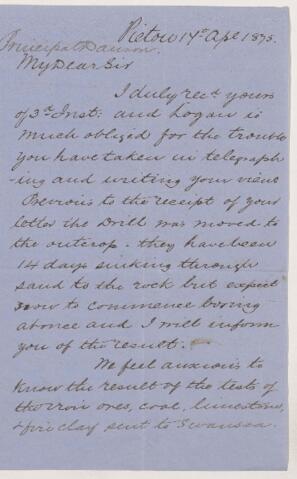 Pictou 17th Apl 1875.
Principal Dawson.
My Dear Sir
I duly rect yours
of 3d Inst: and Logan is
much obliged for the trouble
you have taken in telegraph
-ing and writing your views
Previous to the receipt of your
letter the Drill was moved to
the outcrop. they have been
14 days sinking through
sand to the rock but expect
now to commence boring
at once and I will inform
you of the result.
We feel anxious to
know the result of the tests of
the iron ores, coal, limestone,
& fire clay sent to Swansea.